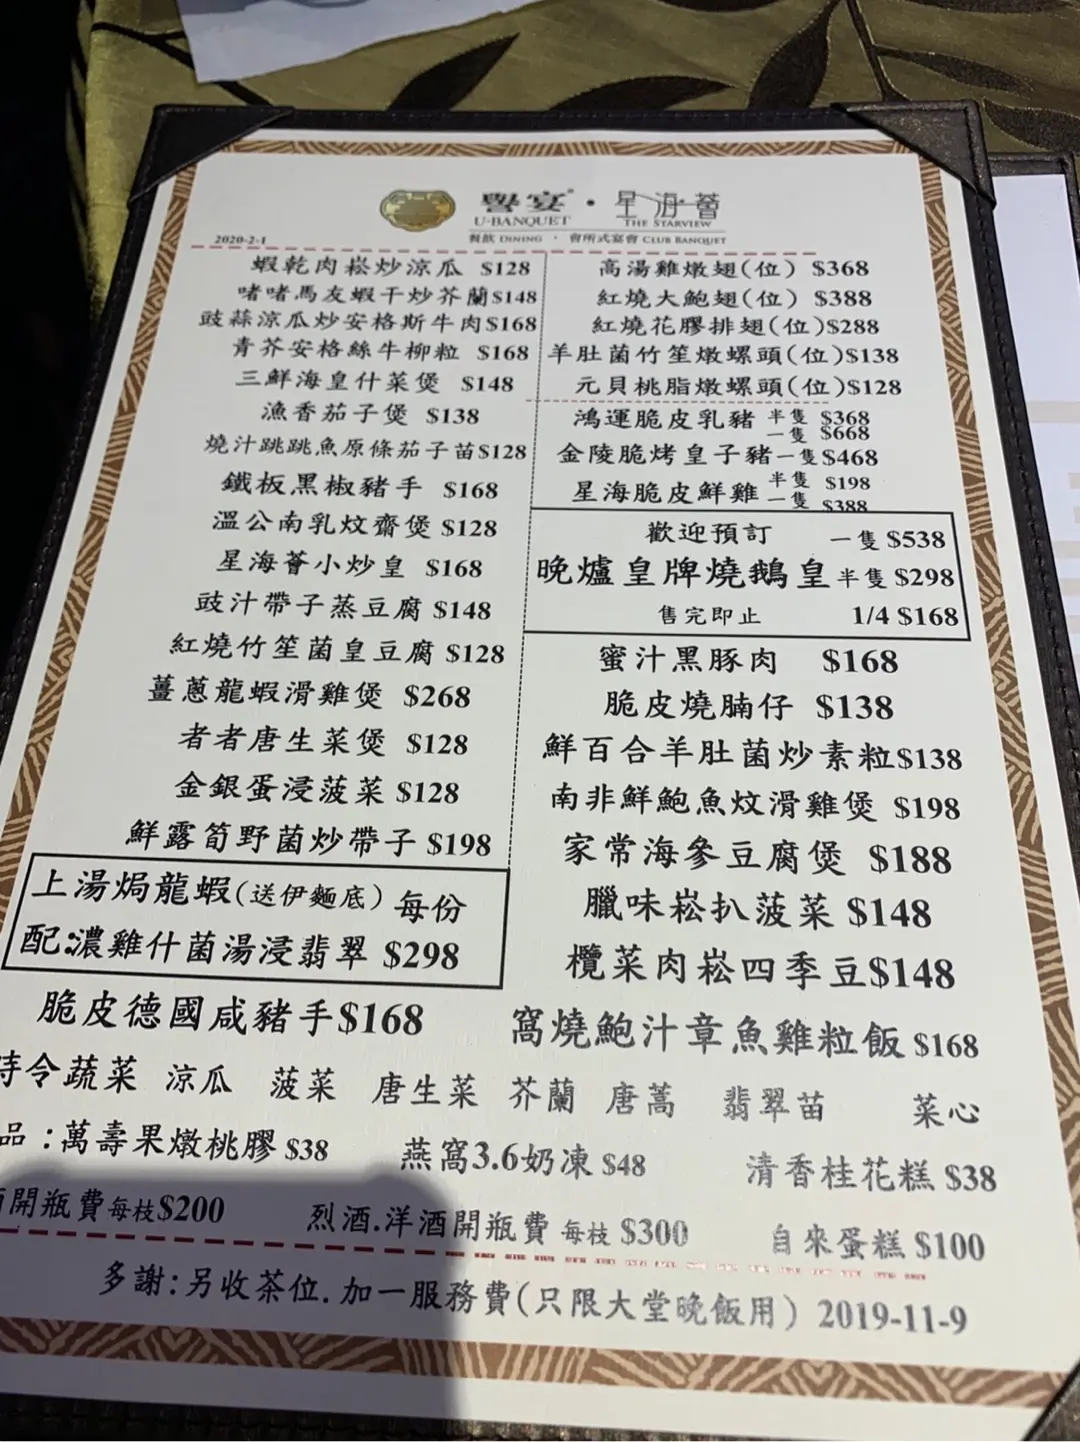 譽宴 · 星海薈
U-BANQUET THE STARVIEW
餐飲 DINING · 會所式宴會 CLUB BANQUET
2020-2-1
蝦乾肉崧炒涼瓜 $128
啫啫馬友蝦干炒芥蘭$148
豉蒜涼瓜炒安格斯牛肉$168
青芥安格絲牛柳粒 $168
三鮮海皇什菜煲 $148
漁香茄子煲 $138
燒汁跳跳魚原條茄子苗$128
鐵板黑椒豬手 $168
溫公南乳炆齋煲 $128
星海薈小炒皇 $168
豉汁帶子蒸豆腐 $148
紅燒竹笙菌皇豆腐 $128
薑蔥龍蝦滑雞煲 $268
者者唐生菜煲 $128
金銀蛋浸菠菜 $128
鮮露筍野菌炒帶子 $198
上湯焗龍蝦(送伊麵底) 每份
配:濃雞什菌湯浸翡翠 $298
脆皮德國咸豬手$168
高湯雞燉翅(位) $368
紅燒大鮑翅(位) $388
紅燒花膠排翅(位)$288
羊肚菌竹笙燉螺頭(位)$138
元貝桃脂燉螺頭(位)$128
鴻運脆皮乳豬 半隻 $368
一隻 $668
金陵脆烤皇子豬一隻$468
星海脆皮鮮雞 半隻 $198
一隻 $388
歡迎預訂 一隻 $538
晚爐皇牌燒鵝皇 半隻 $298
售完即止 1/4 $168
蜜汁黑豚肉 $168
脆皮燒腩仔 $138
鮮百合羊肚菌炒素粒$138
南非鮮鮑魚炆滑雞煲 $198
家常海參豆腐煲 $188
臘味崧扒菠菜 $148
欖菜肉崧四季豆$148
窩燒鮑汁章魚雞粒飯 $168
時令蔬菜 涼瓜 菠菜 唐生菜 芥蘭 唐蒿 翡翠苗 菜心
品:萬壽果燉桃膠 $38 燕窩3.6奶凍 $48 清香桂花糕 $38
開瓶費每枝$200 烈酒.洋酒開瓶費 每枝 $300 自來蛋糕 $100
多謝:另收茶位.加一服務費(只限大堂晚飯用) 2019-11-9